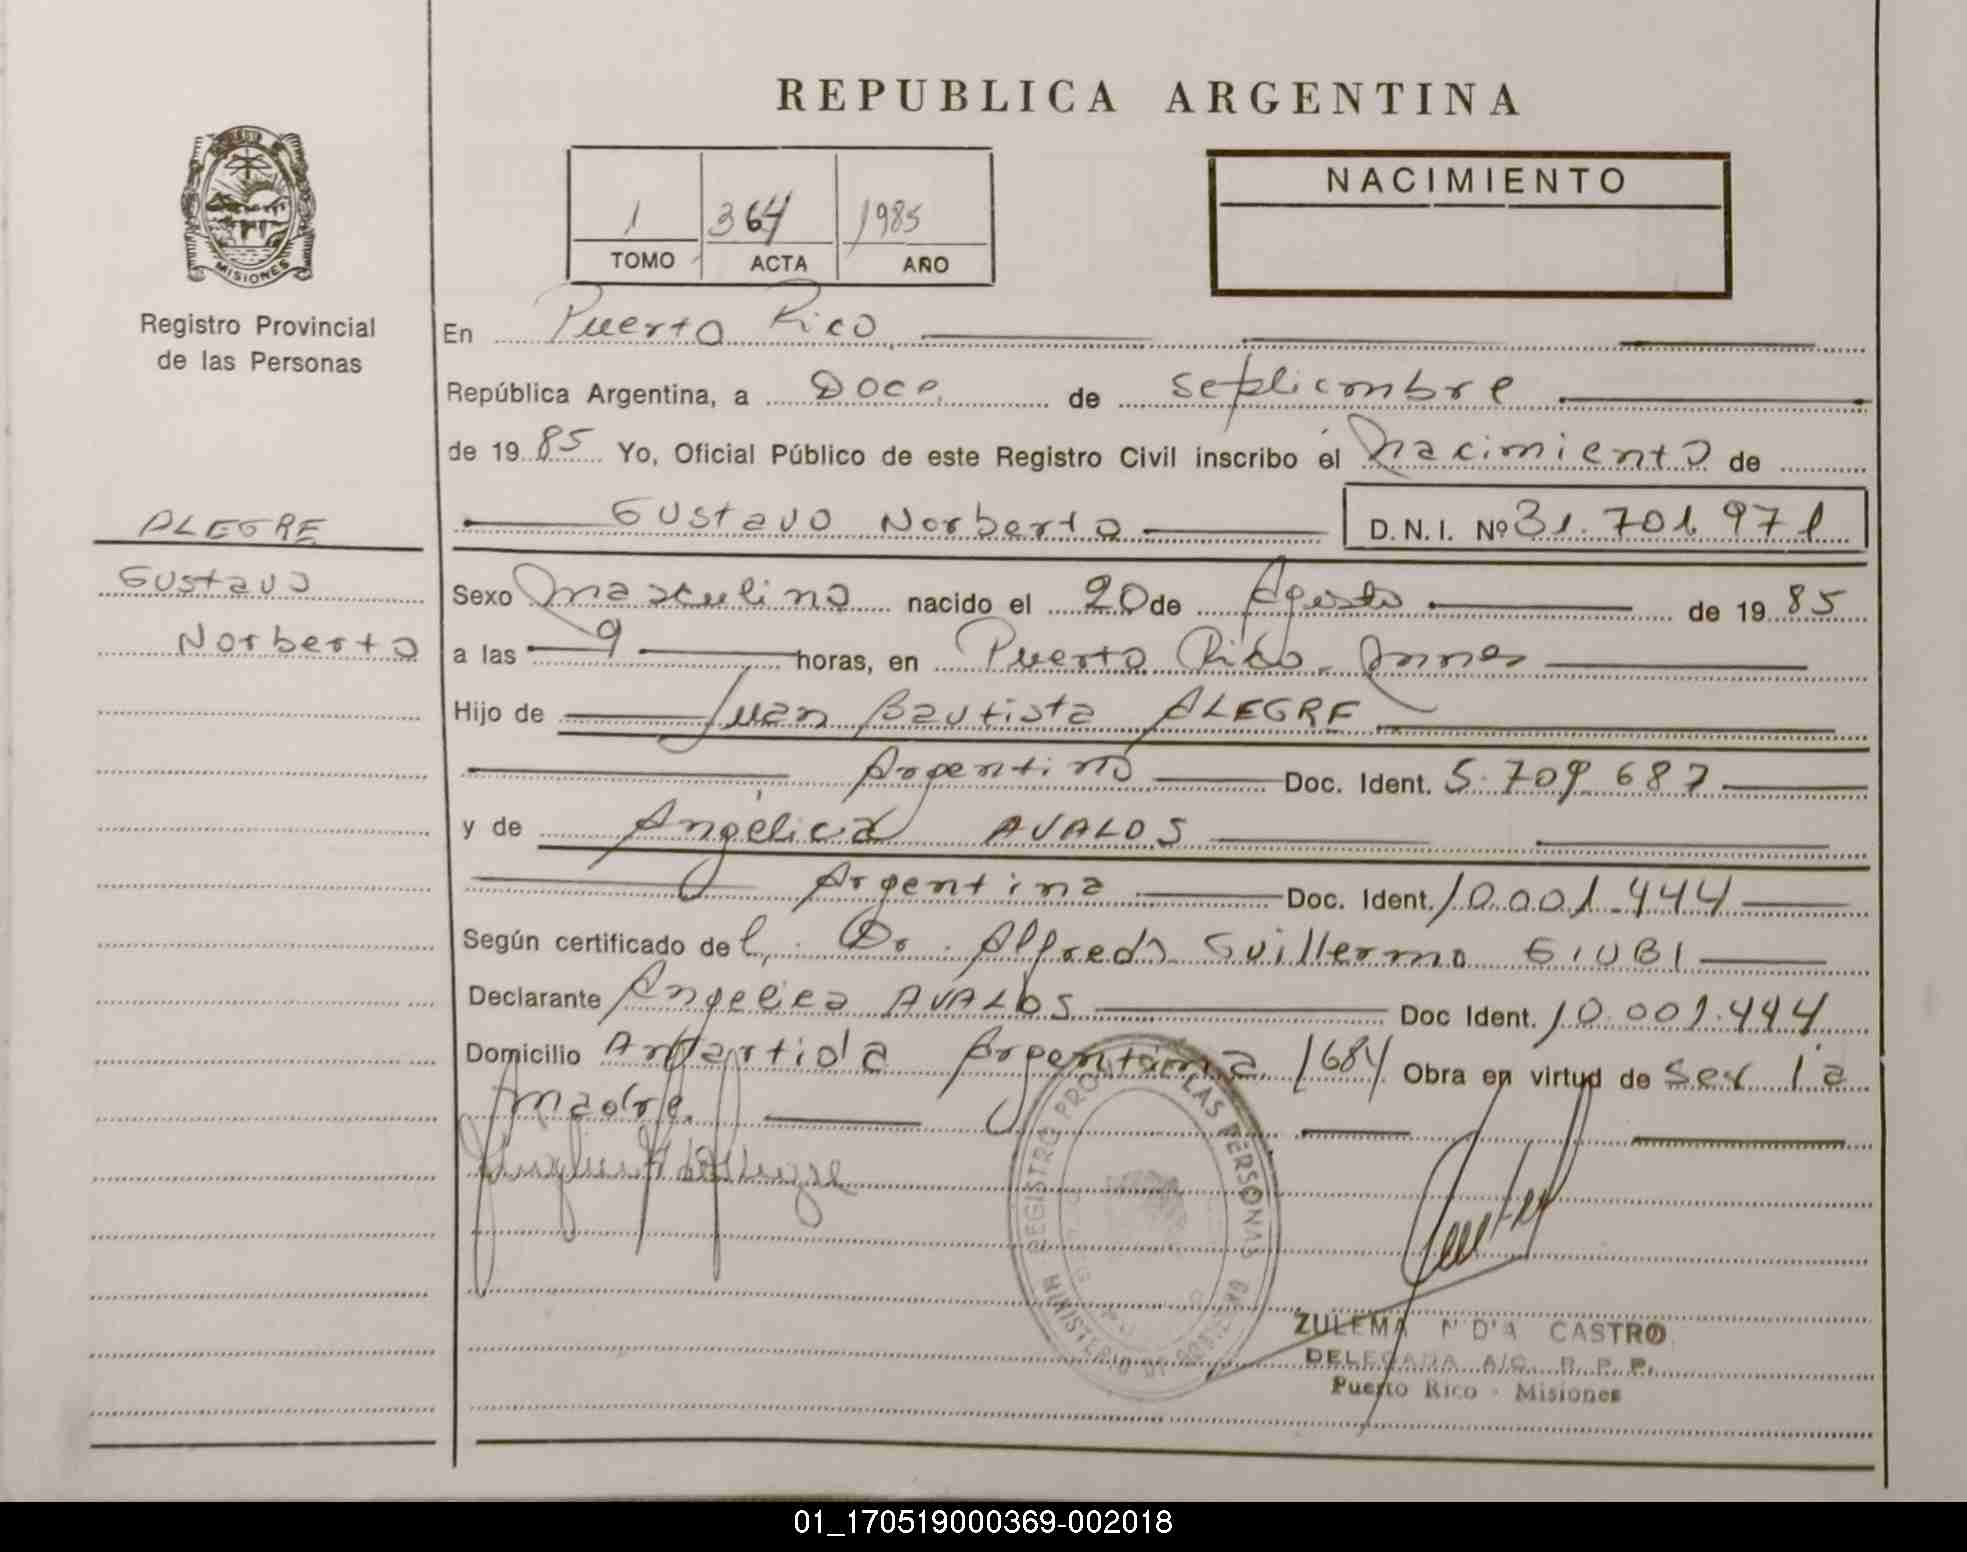 REPUBLICA ARGENTINA
MISIONES
Registro Provincial
de las Personas
1 364 1985
TOMO ACTA AÑO
NACIMIENTO
En Puerto Rico
República Argentina, a Doce de septiembre
de 1985 Yo, Oficial Público de este Registro Civil inscribo el Nacimiento de
Gustavo Norberto D.N.I. Nº 31.701.971
ALEGRE
Gustavo
Norberto
Sexo Masculino nacido el 20 de Agosto de 1985
a las 9 horas, en Puerto Rico
Hijo de Juan Bautista ALEGRE
Argentino Doc. Ident. 5.709.687
y de Angélica AVALOS
Argentina Doc. Ident. 10.001.444
Según certificado del, Dr. Alfredo Guillermo GIUBI
Declarante Angelica AVALOS Doc Ident. 10.001.444
Domicilio Antartida Argentina 1684 Obra en virtud de ser la
Madre.
REGISTRO PROV. LAS PERSONAS
MINISTERIO DE GOBIERNO
ZULEMA CASTRO
DELEGADA A/C. R. P. P.
Puerto Rico - Misiones
01_170519000369-002018